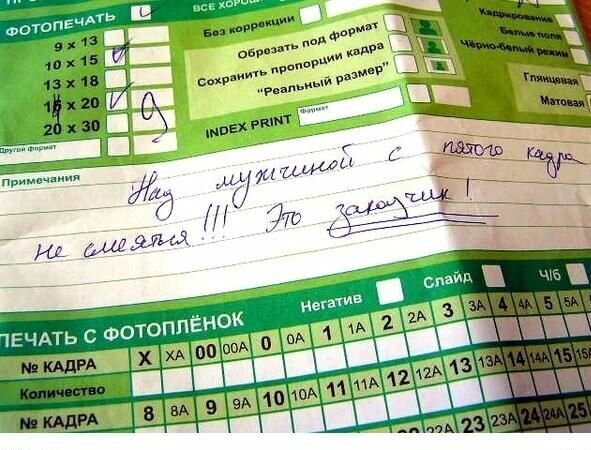 ВСЕ ХОРОШ
ФОТОПЕЧАТЬ
Без коррекции
Кадрирование
9 x 13
Обрезать под формат
Белые поля
10 x 15
Сохранить пропорции кадра
Чёрно-белый режим
13 x 18
"Реальный размер"
Глянцевая
20
9
20 x 30
INDEX PRINT
Формат
Матовая
Другой формат
Примечания
Над мужчиной с пятого кадра
не смеяться!!! Это заказчик!
Негатив Слайд Ч/б
ПЕЧАТЬ С ФОТОПЛЁНОК
№ КАДРА X XA 00 00A 0 0A 1 1A 2 2A 3 3A 4 4A 5 5A
Количество
№ КАДРА 8 8A 9 9A 10 10A 11 11A 12 12A 13 13A 14 14A 15 15A
22 22A 23 23A 24 24A 25